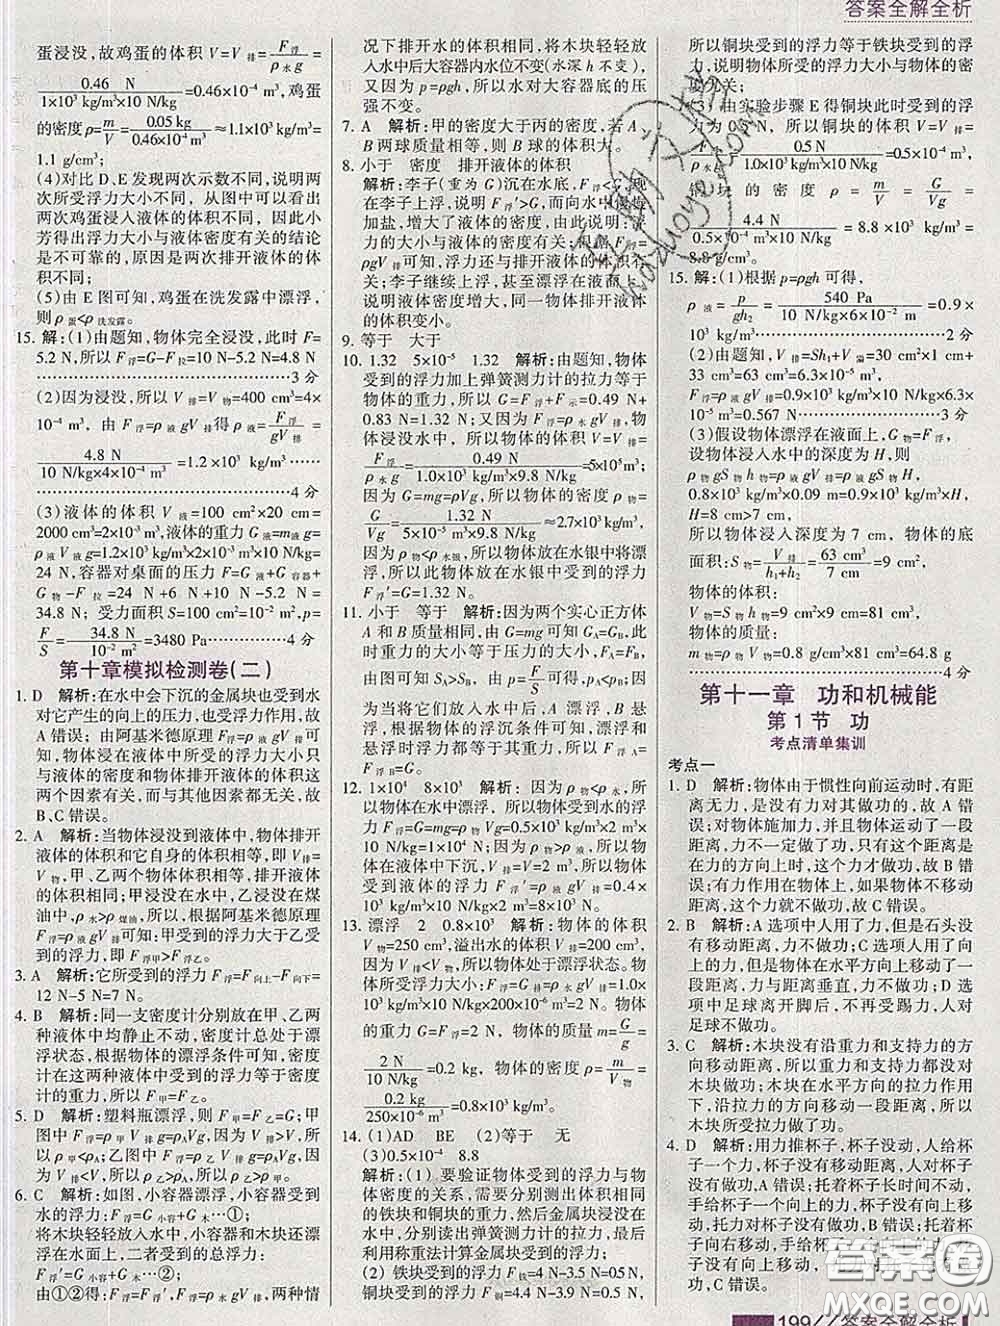 答案全解全析
蛋浸没,故鸡蛋的体积 V=V排=F浮/ρ水g=
0.46 N/(1×10³ kg/m³×10 N/kg)=0.46×10⁻⁴ m³,鸡蛋
的密度ρ=m/V=0.05 kg/(0.46×10⁻⁴ m³)≈1.1×10³ kg/m³=
1.1 g/cm³;
(4)对比 D、E 发现两次示数不同,说明两
次所受浮力大小不同,从图中可以看出
两次鸡蛋浸入液体的体积不同,因此小
芳得出浮力大小与液体密度有关的结论
是不可靠的,原因是两次排开液体的体
积不同;
(5)由 E 图可知,鸡蛋在洗发露中漂浮,
则 ρ蛋<ρ洗发露。
15. 解:(1)由题知,物体完全浸没,此时 F=
5.2 N,所以 F浮=G-F拉=10 N-5.2 N=4.8 N
3 分
(2)因为浸没,所以 V排=V物=400 cm³=4×
10⁻⁴ m³,由 F浮=ρ液gV排得 ρ液=F浮/gV排=
4.8 N/(10 N/kg×4×10⁻⁴ m³)=1.2×10³ kg/m³
4 分
(3)液体的体积 V液=100 cm²×20 cm=
2000 cm³=2×10⁻³ m³,液体的重力 G液=m液g=
ρ液V液g=1.2×10³ kg/m³×2×10⁻³ m³×10 N/kg=
24 N,容器对桌面的压力 F=G液+G容器+
G物-F拉=24 N+6 N+10 N-5.2 N=
34.8 N;受力面积 S=100 cm²=10⁻² m²,p=
F/S=34.8 N/10⁻² m²=3480 Pa 4 分
第十章模拟检测卷(二)
1. D 解析:在水中会下沉的金属块也受到水
对它产生的向上的压力,也受浮力作用,故
A 错误;由阿基米德原理 F浮=ρ液gV排可
知,浸在液体中所受到的浮力大小只
与液体的密度和物体排开液体的体积这
两个因素有关,而与其他因素都无关,故
B、C 错误。
2. A 解析:当物体浸没到液体中,物体排开
液体的体积和它自身的体积相等,即 V排=
V物,甲、乙两个物体体积相等,以它们排开液
体的体积相同;甲浸没在水中,乙浸没在煤
油中,ρ水>ρ煤油,所以,根据阿基米德原理
F浮=ρ液gV排可知:甲受到的浮力大于乙受
到的浮力,即 F浮甲>F浮乙。
3. A 解析:它所受到的浮力 F浮=F向上-F向下=
12 N-5 N=7 N。
4. B 解析:同一支密度计分别放在甲、乙两
种液体中均静止不动,密度计总处于漂
浮状态,根据物体的漂浮条件可知,密度
计在这两种液体中受到的浮力等于密度
计的重力,所以 F甲=F乙。
5. D 解析:塑料瓶漂浮,则 F甲=F乙=G;甲
图中 F浮=ρ甲V排g=ρAVg,因为 V排>V,所
以 ρ甲<ρA;乙图中,F浮=ρ乙V排g=ρBVg,
因为 V排<V,所以 ρ乙>ρB。
6. C 解析:如图,小容器漂浮,小容器受到
的浮力:F浮=G小容器+G木…①;
将木块轻轻放入水中,小容器和木块还漂
浮在水面上,二者受到的总浮力:
F浮′=G小容+G木…②
由①②得:F浮=F浮′,即两种情
况下排开水的体积相同,将木块轻轻放
入水中后大容器内水位不变(水深 h 不变),
因为 p=ρgh,所以水对大容器底的压
强不变。
7. A 解析:甲的密度大于丙的密度,若 A、
B 两球质量相等,则 B 球的体积大。
8. 小于 密度 排开液体的体积
解析:李子(重为 G)沉在水底,F浮<G,现
在李子上浮,说明 F浮′>G,而向水中慢慢
加盐,增大了液体的密度,由此说明:浮
力的大小与液体的密度有关;由 F浮=
ρgV排可知,浮力还与排开液体的体积有
关;李子继续上浮,甚至漂浮在液面上,
说明液体密度增大,同一物体排开液体
的体积变小。
9. 等于 大于
10. 1.32 5×10⁻⁵ 1.32 解析:由题知,物体
受到的浮力加上弹簧测力计的拉力等于
物体的重力,所以 G=F浮+F示=0.49 N+
0.83 N=1.32 N;又因为 F浮=ρ水gV排,物
体浸没水中,所以物体的体积 V=V排=
F浮/ρ水g=0.49 N/(1.0×10³ kg/m³×9.8 N/kg)=5×10⁻⁵ m³
因为 G=mg=ρVg,所以物体的密度 ρ物=
G/Vg=1.32 N/(5×10⁻⁵ m³×9.8 N/kg)≈2.7×10³ kg/m³,
因为 ρ物<ρ水银,所以物体放在水银中将漂浮,
所以此物体放在水银中受到的浮力
F浮′=G=1.32 N。
11. 小于 等于 解析:因为两个实心正方体
A 和 B 质量相同,由 G=mg 可知 GA=GB,
此时重力的大小等于压力的大小,所以
FA=FB,由 p=F/S 得:S=F/p,pA>pB,由
题图可知 SA>SB,根据 p=F/S 可得,pA<pB;
因为当将它们放入水中后,A 漂浮,B 悬
浮,根据物体的浮沉条件可知,漂浮和悬
浮时浮力都等于其重力,所以 FA=FB。
12. 1×10⁴ 8×10³ 解析:因为 0.5×10³<
1.0×10³,所以物体在水中漂浮,所以
F浮=G=mg=ρ物Vg=0.5×10³ kg/m³×2 m³×
10 N/kg=1×10⁴ N;因为 ρ物>ρ液,所以物
体在液体中下沉,V排=V=2 m³,所以物体
受到液体的浮力 F浮′=ρ液gV排=0.4×
10³ kg/m³×10 N/kg×2 m³=8×10³ N。
13. 漂浮 2 0.8×10³ 解析:物体的体积
V物=250 cm³,溢出水的体积 V排=200 cm³,
因为 V排<V物,所以物体处于漂浮状态。物体
受浮力大小:F浮=ρ水gV排=1.0×
10³ kg/m³×10 N/kg×200×10⁻⁶ m³=2 N。物体
的重力 G=F浮=2 N,物体的质量 m=G/g=
2 N/10 N/kg=0.2 kg,物体的密度=m/V物=
0.2 kg/(250×10⁻⁶ m³)=0.8×10³ kg/m³。
14. (1)AD BE (2)等于 无
(3)0.5×10⁻⁴ 8.8
解析:(1)要验证物体受到的浮力与物
体密度的关系,需要分别测出体积相同
的铁块和铜块的重力,然后金属块浸没在水
中,分别读出弹簧测力计的拉力;最后
利用称重法计算金属块受到的浮力;
(2)铁块受到的浮力=4 N-3.5 N=0.5 N,
铜块受到的浮力=4.4 N-3.9 N=0.5 N,
所以铜块受到的浮力等于铁块受到的浮
力,说明物体所受的浮力大小与物体的密
度无关;
(3)由实验步骤 E 得铜块此时受到的浮
力为 0.5 N,所以铜块的体积 V=V排=
F浮/ρ水g=0.5 N/(1.0×10³ kg/m³×10 N/kg)=0.5×10⁻⁴ m³,
铜块的密度 ρ=m/V=G/Vg=
4.4 N/(0.5×10⁻⁴ m³×10 N/kg)=8.8×10³ kg/m³=
8.8 g/cm³。
15. 解:(1)根据 p=ρgh 可得,
ρ液=p/gh₂=540 Pa/(10 N/kg×6×10⁻² m)=0.9×
10³ kg/m³ 2 分
(2)由题知,V排=Sh₁+V溢=30 cm²×1 cm+
33 cm³=63 cm³=6.3×10⁻⁵ m³,
F浮=ρ液gV排=0.9×10³ kg/m³×10 N/kg×6.3×
10⁻⁵ m³=0.567 N 3 分
(3)假设物体漂浮在液面上,G物=F浮,
设物体浸入水中的深度为 H,则
ρ物gS物h物=ρ液gV排=ρ液gS物H,
0.8×10³ kg/m³×0.09 m=0.9×10³ kg/m³×H,
H=8 cm>7 cm,
所以物体浸入深度为 7 cm,物体的底
面积:S物=V排/(h₁+h₂)=63 cm³/7 cm=9 cm²,
物体的体积:
V物=S物h物=9 cm²×9 cm=81 cm³,
物体的质量:
m物=ρ物V物=0.8 g/cm³×81 cm³=64.8 g
4 分
第十一章 功和机械能
第 1 节 功
考点清单集训
考点一
1. D 解析:物体由于惯性向前运动时,有距
离无力,是没有力对其做功的,故 A 错
误;对物体施加力,并且物体运动了一段
距离,力不一定做了功,只有这个距离是
在力的方向上时,这个力才做功,故 B 错
误;有力作用在物体上,如果物体不移动
距离,这个力就不做功,故 C 错误。
2. B 解析:A 选项中人用了力,但是石头没
有移动距离,力不做功;C 选项人用了向
上的力,物体在水平方向上移动了一段
距离,力与距离垂直,力不做功;D 选
项中足球离开脚后,不再受踢力,人对
足球不做功。
3. C 解析:木块没有沿重力和支持力的方
向移动距离,所以重力和支持力都没有对
木块做功;木块在水平方向的拉力作用
下,沿拉力的方向移动了一段距离,所以
木块所受拉力做了功。
4. D 解析:用力推杯子,杯子没动,人给杯子
一个力,杯子没有移动距离,人对杯子没有
做功,A 错误;托着杯子长时间不动,
手给杯子一个向上的力,杯子没有向上移
动,拉力对杯子没有做功,B 错误;托着杯
子向右移动,
子没有做功,C 错误。
199//答案全解全析
答案圈
MXQE.COM